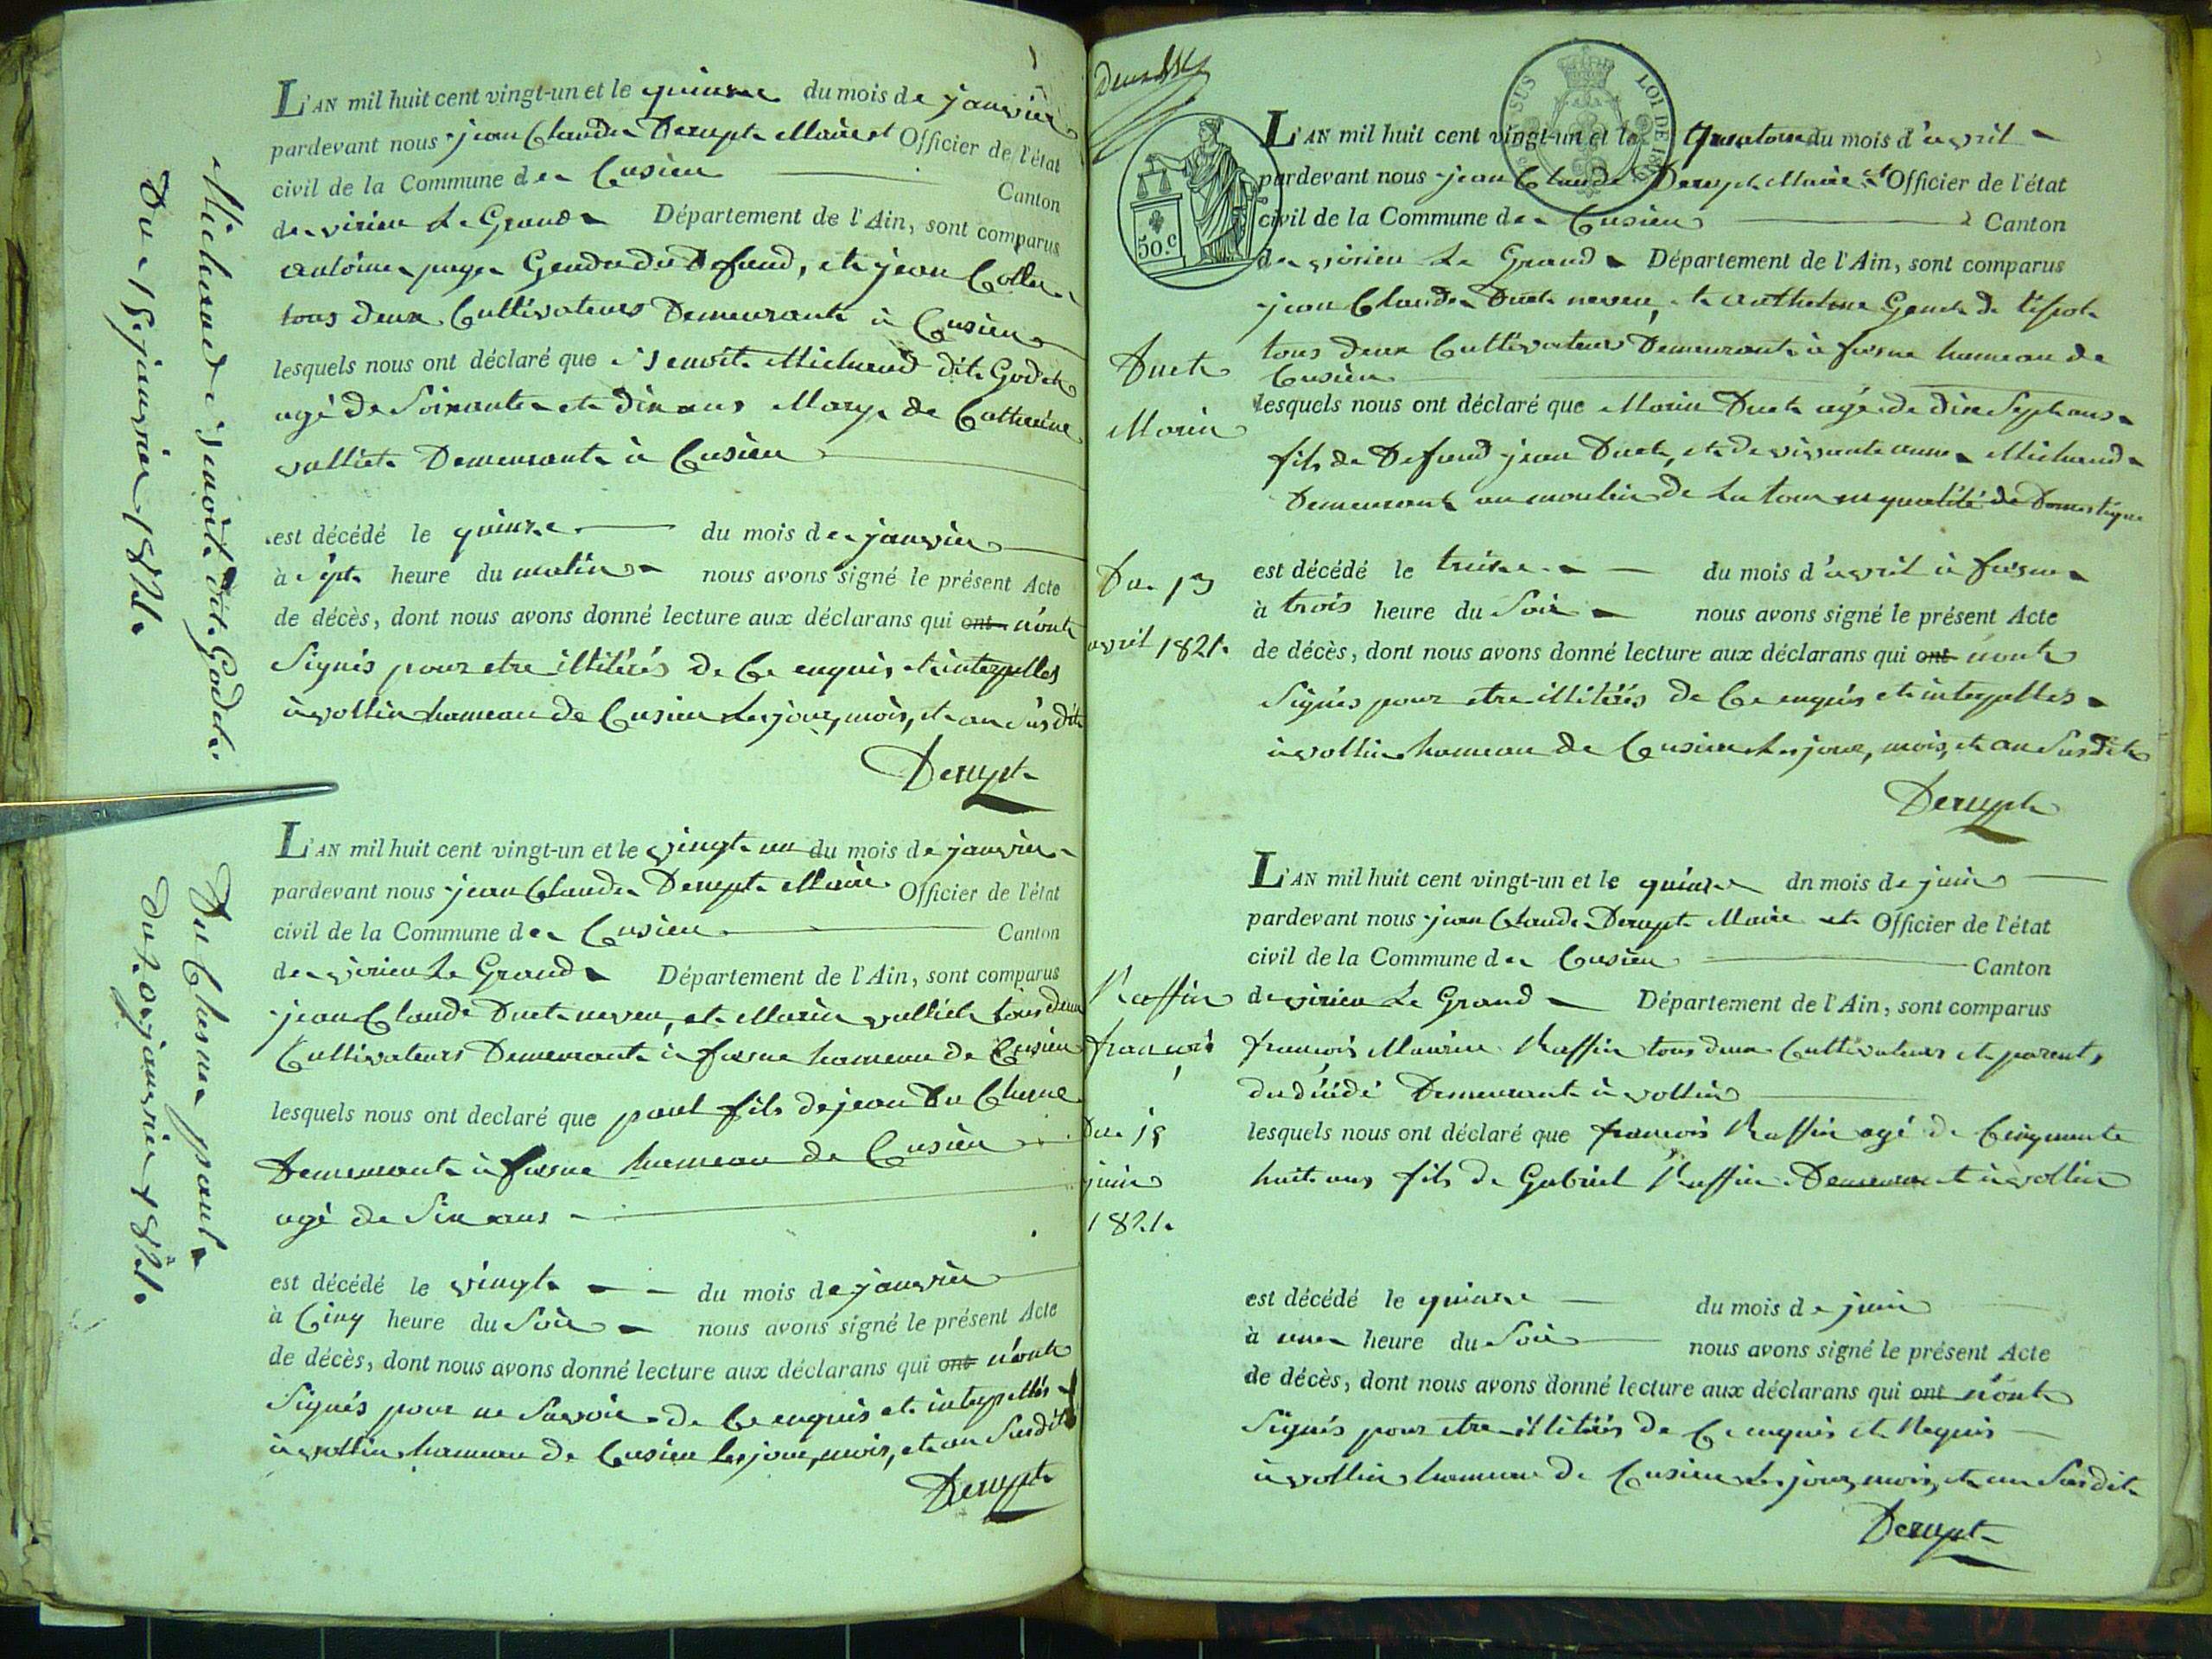 Michaud Benoit dit Godet.
Du 15 janvier 1821.
L'AN mil huit cent vingt-un et le quinze du mois de janvier
pardevant nous jean Claude Derupt Maire et Officier de l'état
civil de la Commune de Cusieu Canton
de virieu Le Grand Département de l'Ain, sont comparus
antoine page Gendre du Defund, et jean Collet
tous deux Cultivateurs Demeurant à Cusieu
lesquels nous ont déclaré que Benoit Michaud dit Godet
agé de Soixante et dix ans Marye de Catherine
valliet Demeurant à Cusieu
est décédé le quinze du mois de janvier
à sept heure du matin nous avons signé le présent Acte
de décès, dont nous avons donné lecture aux déclarans qui ont n'ont
Signés pour etre illitérés de Ce enquis et interpellés
à vollin hameau de Cusieu Les jour, mois, et an susdit
Derupt
Du Chesne paul
du 20 janvier 1821.
L'AN mil huit cent vingt-un et le vingt un du mois de janvier
pardevant nous jean Claude Derupt Maire Officier de l'état
civil de la Commune de Cusieu Canton
de virieu Le Grand Département de l'Ain, sont comparus
jean Claude Duet neveu, et Marin valliet tous deux
Cultivateurs Demeurant à fusne hameau de Cusieu
lesquels nous ont declaré que paul fils de jean Du Chesne
Demeurant à fusne hameau de Cusieu
agé de Six ans
est décédé le vingt du mois de janvier
à Cinq heure du Soir nous avons signé le présent Acte
de décès, dont nous avons donné lecture aux déclarans qui ont n'ont
Signés pour ne Savoir de Ce enquis et interpellés
à vollin hameau de Cusieu Les jour, mois, et an Susdit
Derupt
SUS LOI DE 18
50.c
L'AN mil huit cent vingt-un et le quatorze du mois d'avril
pardevant nous jean Claude Derupt Maire et Officier de l'état
civil de la Commune de Cusieu Canton
de virieu Le Grand Département de l'Ain, sont comparus
jean Claude Duet neveu, et anthelme Genet
tous deux Cultivateurs Demeurant à fusne hameau de
Cusieu
Duet
Marin
lesquels nous ont déclaré que Marin Duet agé de dix Sept ans
fils de Defund jean Duet, et de vivante anne Michaud
Demeurant au moulin de La tour en qualité de Domestique
Du 13
avril 1821.
est décédé le treize du mois d'avril à fusne
à trois heure du Soir nous avons signé le présent Acte
de décès, dont nous avons donné lecture aux déclarans qui ont n'ont
Signés pour etre illitérés de Ce enquis et interpellés
à vollin hameau de Cusieu Les jour, mois, et an Susdit
Derupt
L'AN mil huit cent vingt-un et le quinze dn mois de juin
pardevant nous jean Claude Derupt Maire et Officier de l'état
civil de la Commune de Cusieu Canton
de virieu Le Grand Département de l'Ain, sont comparus
Raffin
françois
françois Maurin Raffin tous deux Cultivateurs et parents
du décédé Demeurant à vollin
Du 15
juin
1821.
lesquels nous ont déclaré que françois Raffin agé de Cinquante
huit ans fils de Gabriel Raffin Demeurant à vollin
est décédé le quinze du mois de juin
à une heure du Soir nous avons signé le présent Acte
de décès, dont nous avons donné lecture aux déclarans qui ont n'ont
Signés pour etre illitérés de Ce enquis et Requis
à vollin hameau de Cusieu Les jour, mois, et an Susdit
Derupt